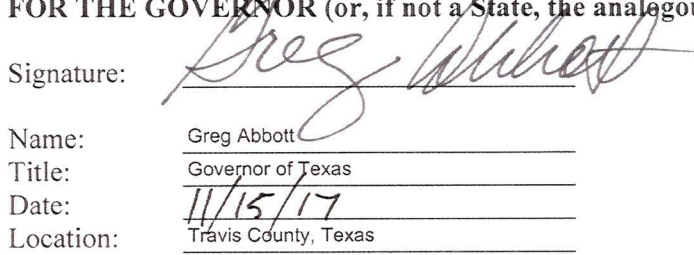 FOR THE GOVERNOR (or, if not a State, the analogou
Signature: Greg Abbott
Name: Greg Abbott
Title: Governor of Texas
Date: 11/15/17
Location: Travis County, Texas